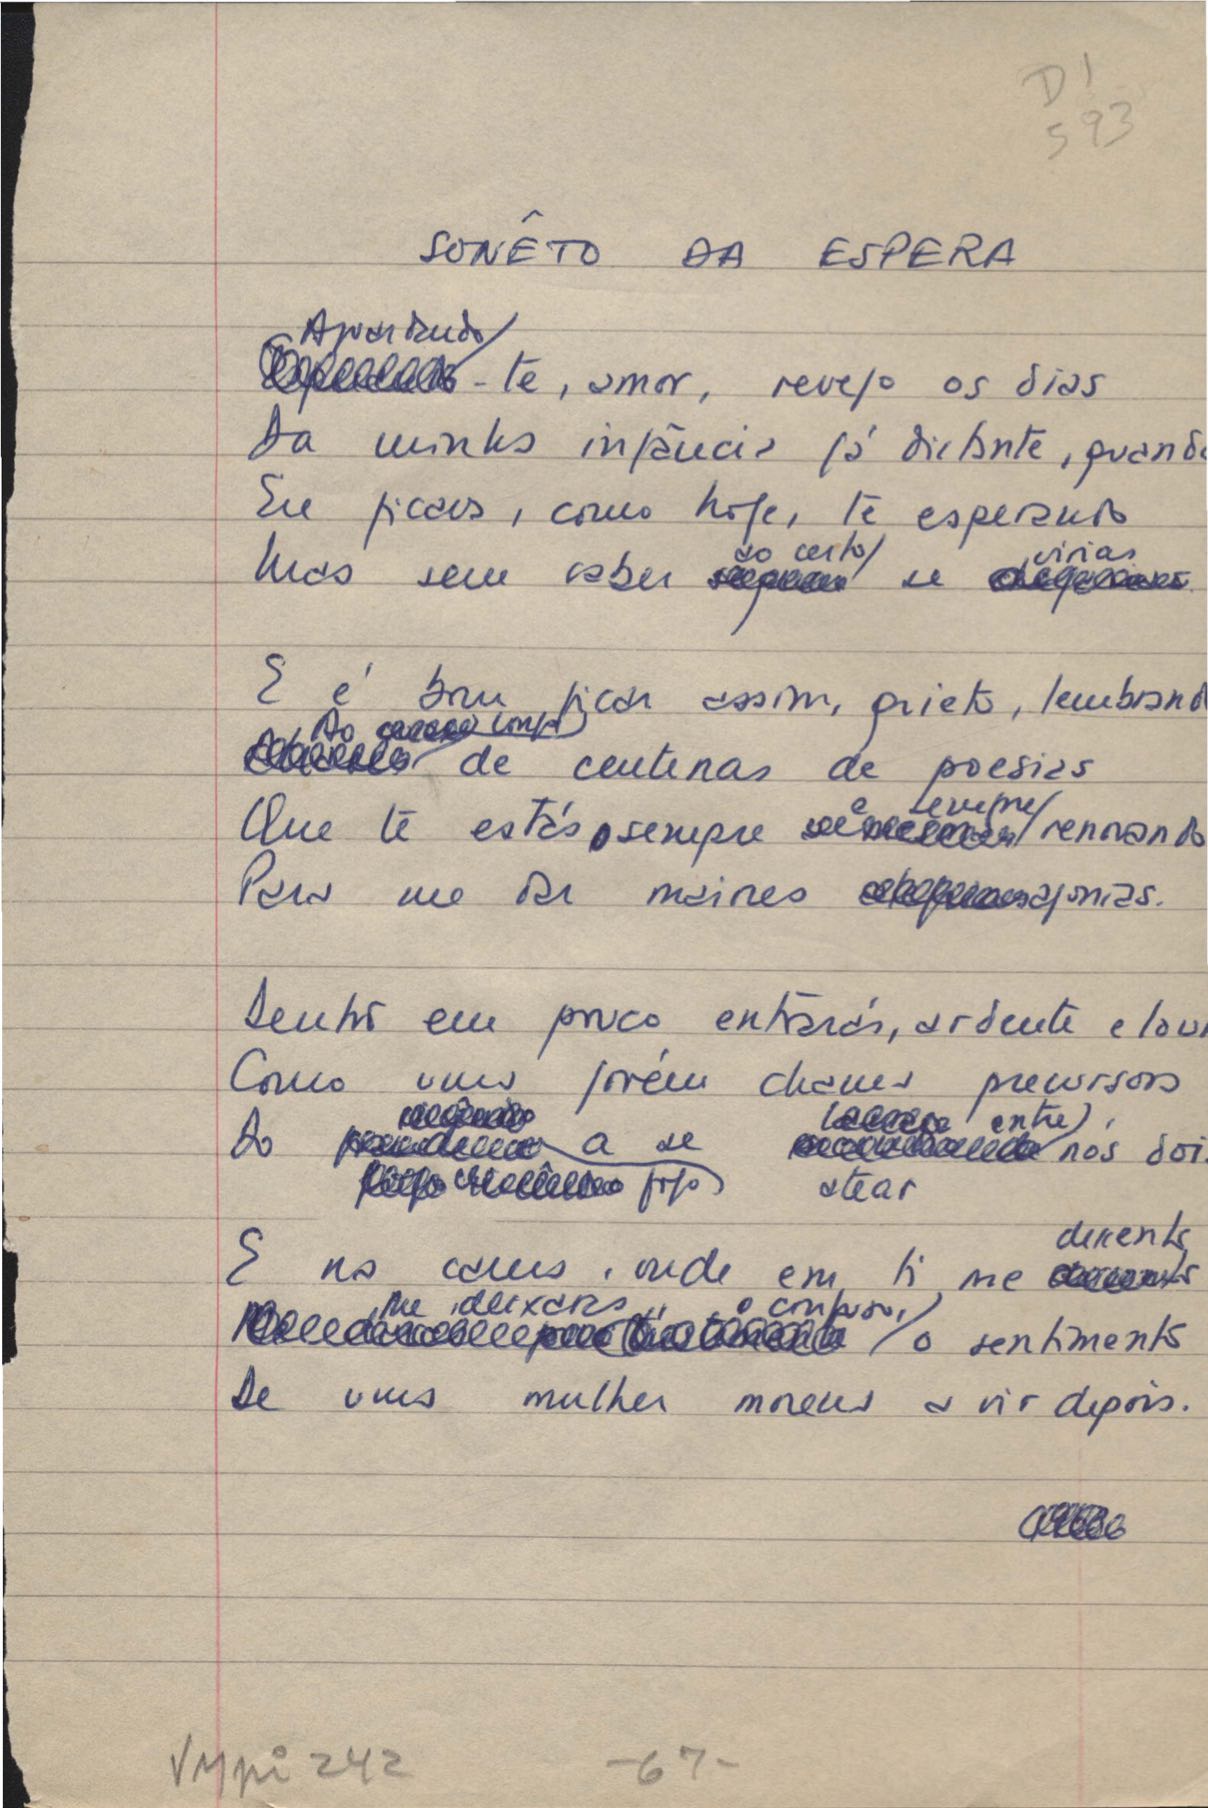 D1
593
SONÊTO DA ESPERA
Aguardando
-te, amor, revejo os dias
Da minha infância já distante, quando
Eu ficava, como hoje, te esperando
Mas sem saber ao certo se virias
E é bom ficar assim, quieto, lembrando
Ao longo de centenas de poesias
Que te estás sempre e sempre renovando
Para me dar maiores agonias.
Dentro em pouco entrarás, ardente e lour
Como uma jovem chama precursora
Do fogo a se atear entre nós dois
E na cama, onde em ti me dessedento
Me deixarás o confuso, o sentimento
De uma mulher morena a vir depois.
Vmpi 242
-67-